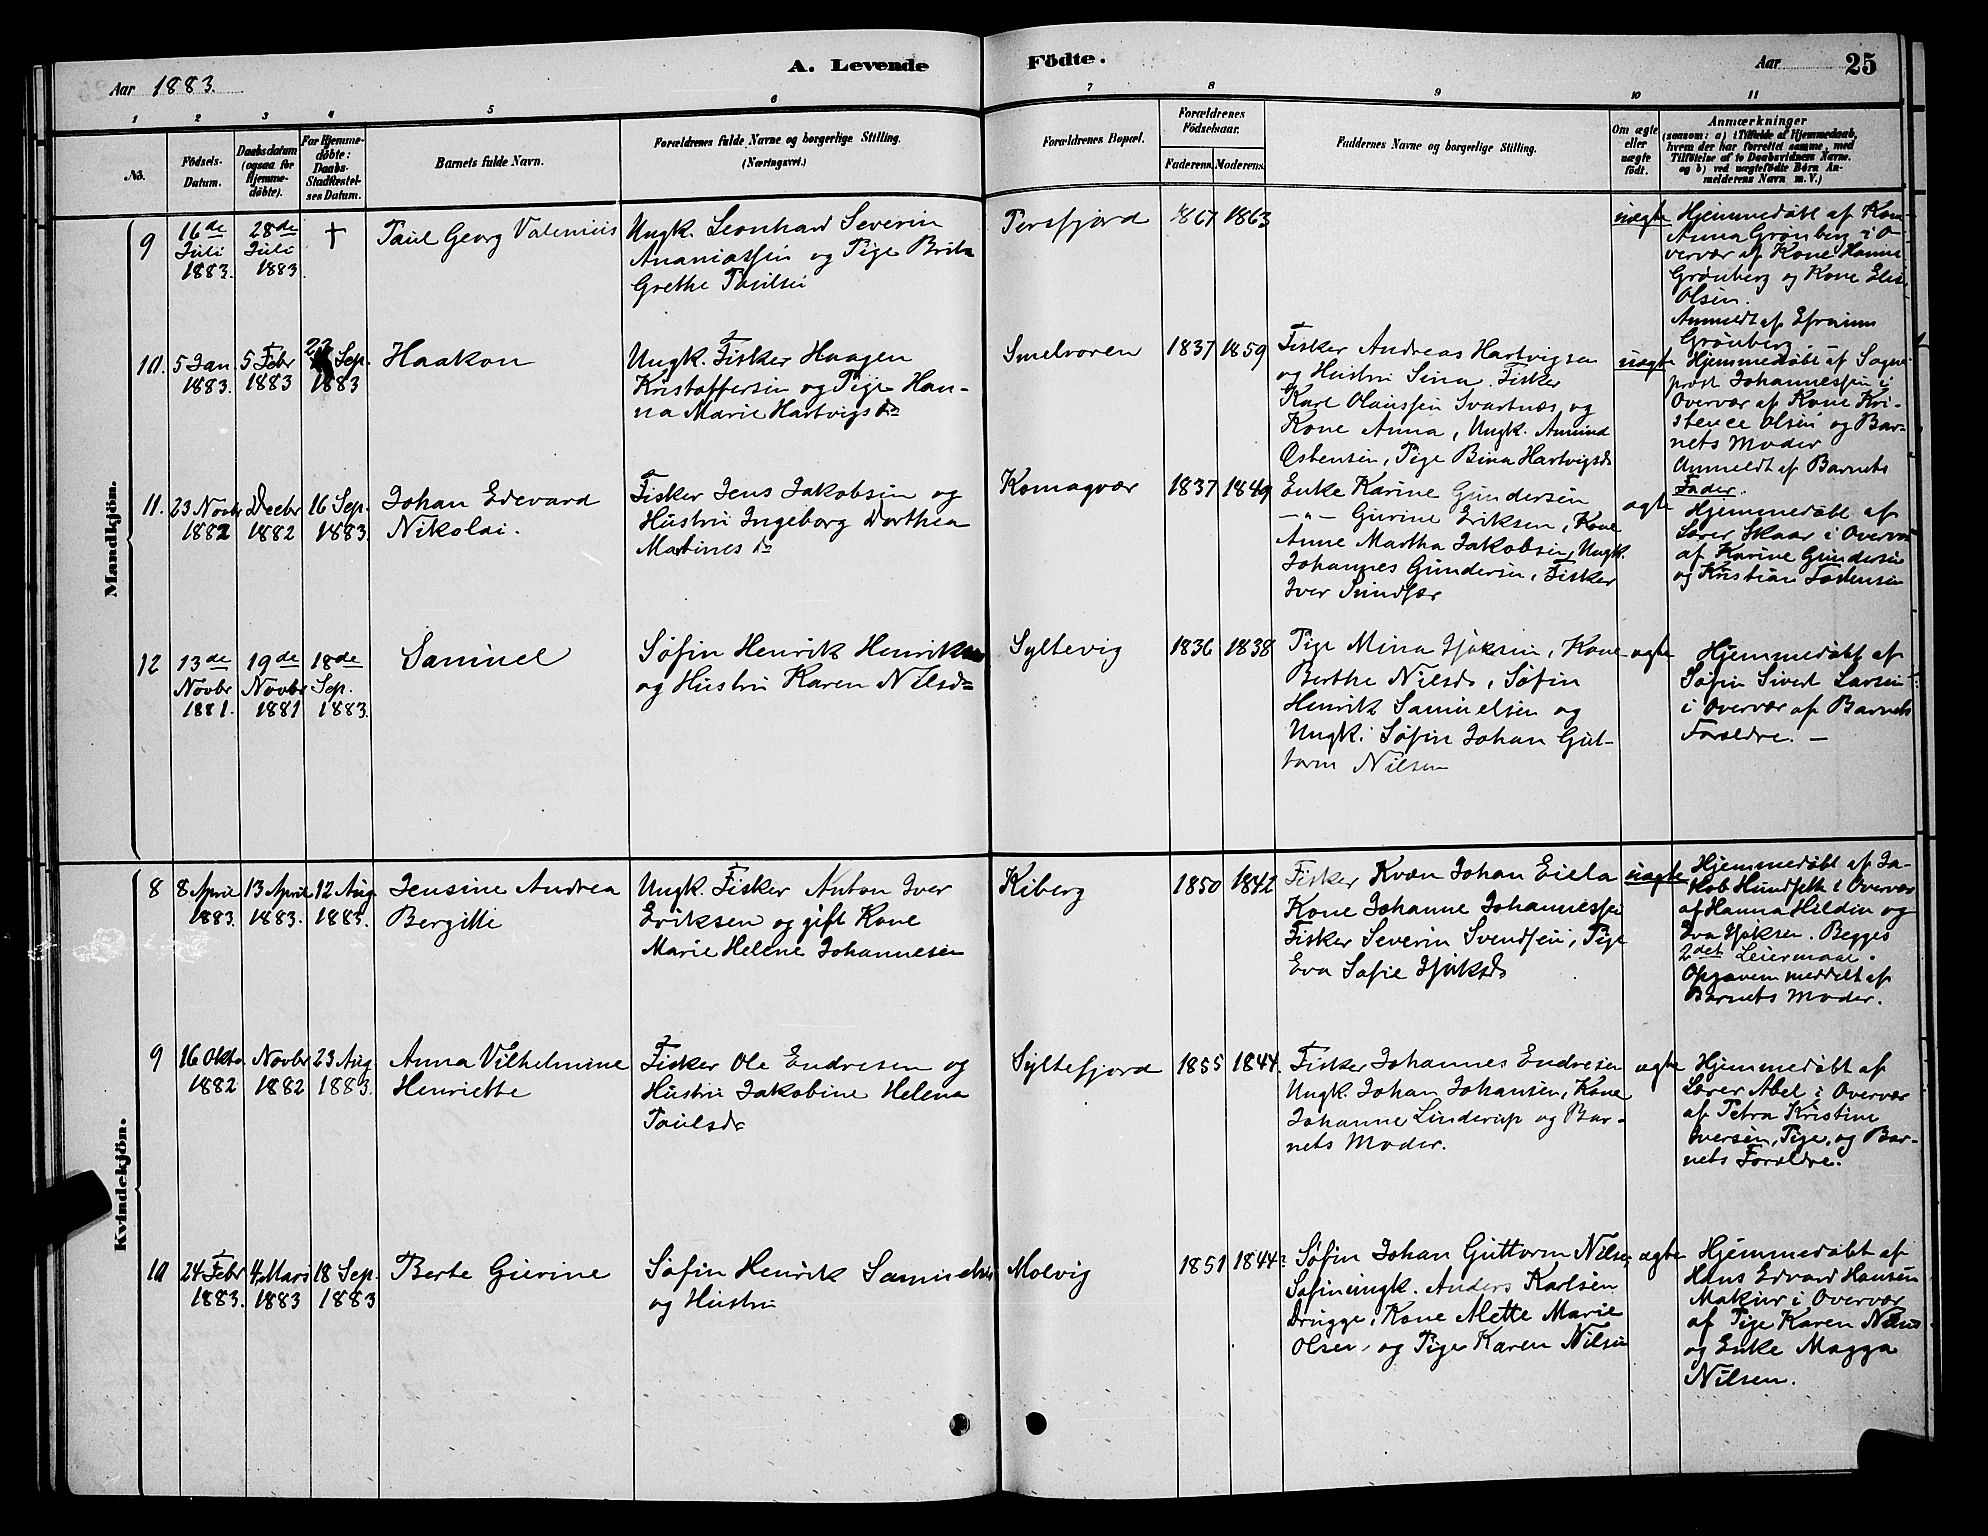 A. Levende
Födte.
Aar 1883.
Aar
25
1 2 3 4 5 6 7 8 9 10 11
No.
Födsels-
Datum.
Daabsdatum
(ogsaa for
Hjemme-
döbte).
For Hjemme-
döbte:
Daabs-
Stadfæstel-
ses Datum.
Barnets fulde Navn.
Forældrenes fulde Navne og borgerlige Stilling.
(Næringsvei.)
Forældrenes Bopæl.
Forældrenes
Födselsaar.
Faderens. Moderens.
Faddernes Navne og borgerlige Stilling.
Om ægte
eller
uægte
födt.
Anmærkninger
(saasom: a) i Tilfælde af Hjemmedaab,
hvem der har forrettet samme, med
Tilföielse af to Daabsvidners Navne.
og b) ved uægtefödte Börn An-
melderens Navn m. V.)
Mandkjön.
9
16de
Juli
1883.
28de
Juli
1883.
†
Paul Georg Valenius
Ungk. Leonhard Severin
Ananiassen og Pige Brita
Grethe Paulsen
Persfjord
1867
1863
uægte
Hjemmedøbt af Kone
Anna Grønberg i O-
vervær af Kone Hanna
Grønberg og Kone Elen
Olsen.
Anmeldt af Efraim
Grønberg.
10.
5 Jan.
1883.
5 Febr
1883
23 Sep.
1883
Haakon
Ungk. Fisker Haagen
Kristoffersen og Pige Han-
na Marie Hartvigsdr
Smelroren
1837
1859
Fisker Andreas Hartvigsen
og Hustru Sina. Fisker
Karl Olaussen Svartnæs og
Kone Anna, Ungk. Amund
Østensen, Pige Bina Hartvigsdr
uægte
Hjemmedøbt af Sogne-
præst Johannessen i
Overvær af Kone Kri-
stence Olsen og Bar-
nets Moder
Anmeldt af Barnets
Fader.
11.
23 Novbr
1882
Decbr
1882
16 Sep.
1883.
Johan Edevard
Nikolai.
Fisker Jens Jakobsen og
Hustru Ingeborg Dorthea
Martinesdr
Komagvær
1837
1849
Enke Karine Gundersen
—"— Gurine Eriksen, Kone
Anne Martha Jakobsen, Ungk.
Johannes Gundersen, Fisker
Iver Sundfær
ægte
Hjemmedøbt af
Lærer Skaar i Overvær
af Karine Gundersen
og Kristian Tostensen
12
13de
Novbr
1881.
19de
Novbr
1881
18de
Sep.
1883.
Samuel
Søfin Henrik Henriksen
og Hustru Karen Nilsdr
Syltevig
1836
1838
Pige Mina Isaksen, Kone
Berthe Nilsdr, Søfin
Henrik Samuelsen og
Ungk. Søfin Johan Gut-
torm Nilsen
ægte
Hjemmedøbt af
Søfin Sivert Larsen
i Overvær af Barnets
Forældre. —
Kvindekjön.
8
8 April
1883.
13 April
1883.
12 Aug
1883.
Jensine Andrea
Bergitte
Ungk. Fisker Anton Iver
Eriksen og gift Kone
Marie Helene Johannesen
Kiberg
1850
1842
Fisker Kvæn Johan Eiela
Kone Johanne Johannessen
Fisker Severin Svendsen, Pige
Eva Sofie Isaksdr
uægte
Hjemmedøbt af Ja-
kob Hundseth i Overvær
af Hanna Hildin og
Eva Isaksen. Begges
2det Leiermaal.
Opgaven meddelt af
Barnets Moder.
9
16 Okto
1882
Novbr
1882
23 Aug
1883.
Anna Vilhelmine
Henriette
Fisker Ole Endresen og
Hustru Jakobine Helena
Paulsdr
Syltefjord
1855
1844.
Fisker Johannes Endresen
Ungk. Johan Johansen, Kone
Johanne Linderup og Bar-
nets Moder.
ægte
Hjemmedøbt af
Lærer Abel i Overvær
af Petra Kristine
Iversen, Pige, og Bar-
nets Forældre.
10
24 Febr
1883.
4 Mars
1883
18 Sep.
1883
Berte Gurine
Søfin Henrik Samuelsen
og Hustru
Molvig
1851
1844
Søfin Johan Guttorm Nilsen
Søfinungk. Anders Karlsen
Drugge, Kone Mette Marie
Olsen, og Pige Karen Nilsen
ægte
Hjemmedøbt af
Hans Edvard Hansen
Makiur i Overvær
af Pige Karen Nilsen
og Enke Magga
Nilsen.